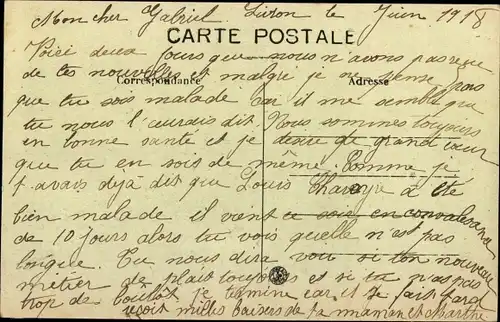 Mon cher Gabriel Livron le Juin 1918
CARTE POSTALE
Voici deux jours que nous n'avons pas reçu
de tes nouvelles et malgré je ne pense pas
Correspondance Adresse
que tu sois malade car il me semble que
tu nous l'aurais dit. Nous sommes toujours
en bonne santé et je désire de grand cœur
que tu en sois de même. Comme je
t'avais déjà dit que Louis a été
bien malade il vient ce soir en convalescence
de 10 jours alors tu vois quelle n'est pas
longue. Tu nous dira voir si ton nouveau
métier te plait toujours et si tu n'a pas
trop de boulot je termine car il se fait tard
reçoit milles baisers de ta maman et Marthe